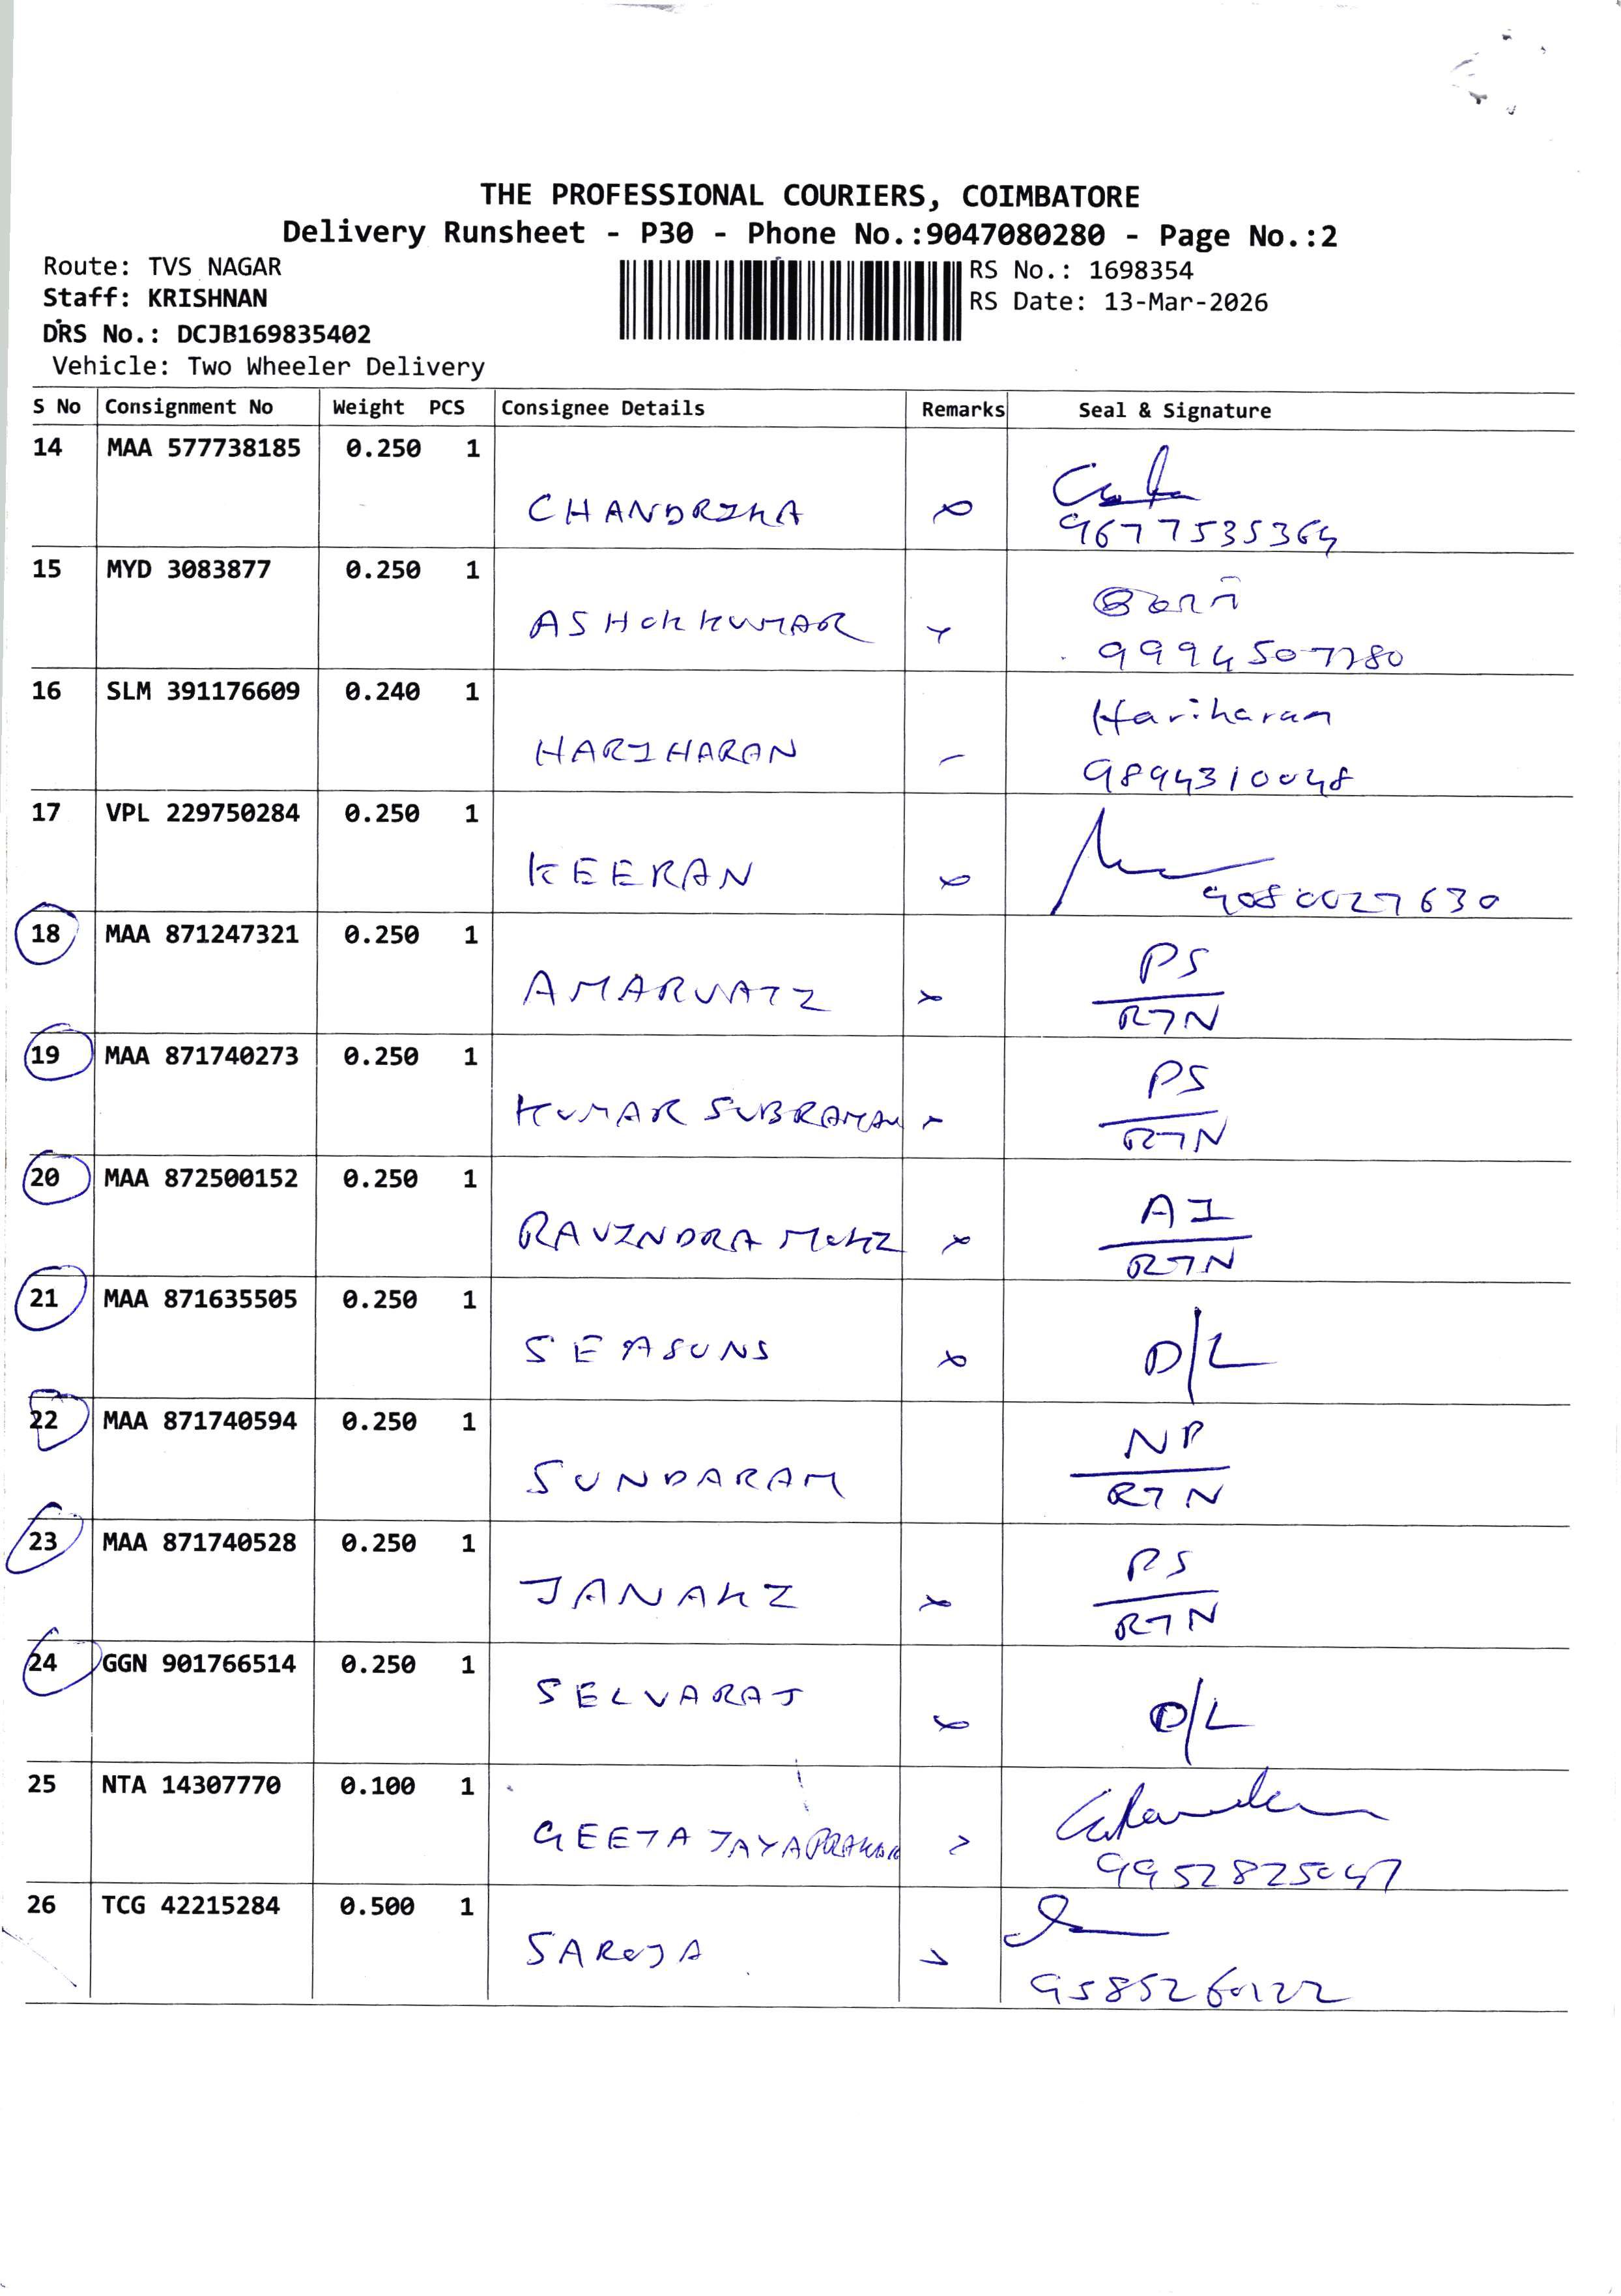 THE PROFESSIONAL COURIERS, COIMBATORE
Delivery Runsheet - P30 - Phone No.:9047080280 - Page No.:2
Route: TVS NAGAR
Staff: KRISHNAN
DRS No.: DCJB169835402
Vehicle: Two Wheeler Delivery
RS No.: 1698354
RS Date: 13-Mar-2026
S No Consignment No Weight PCS Consignee Details Remarks Seal & Signature
14 MAA 577738185 0.250 1
CHANDRIKA
9677535364
15 MYD 3083877 0.250 1
ASHOKKUMAR
9994507780
16 SLM 391176609 0.240 1
Hariharan
HARIHARAN
9894310048
17 VPL 229750284 0.250 1
KEERAN
9080027630
18 MAA 871247321 0.250 1
PS
AMARVATI
RTN
19 MAA 871740273 0.250 1
PS
KUMAR SUBRAMAN
RTN
20 MAA 872500152 0.250 1
AI
RAVINDRA MOKI
RTN
21 MAA 871635505 0.250 1
SEASONS D/L
22 MAA 871740594 0.250 1
NP
SUNDARAM
RTN
23 MAA 871740528 0.250 1
PS
JANAKI
RTN
24 GGN 901766514 0.250 1
SELVARAJ
D/L
25 NTA 14307770 0.100 1
GEETA JAYAPRAKASH
9952825047
26 TCG 42215284 0.500 1
SAROJA
9585260122